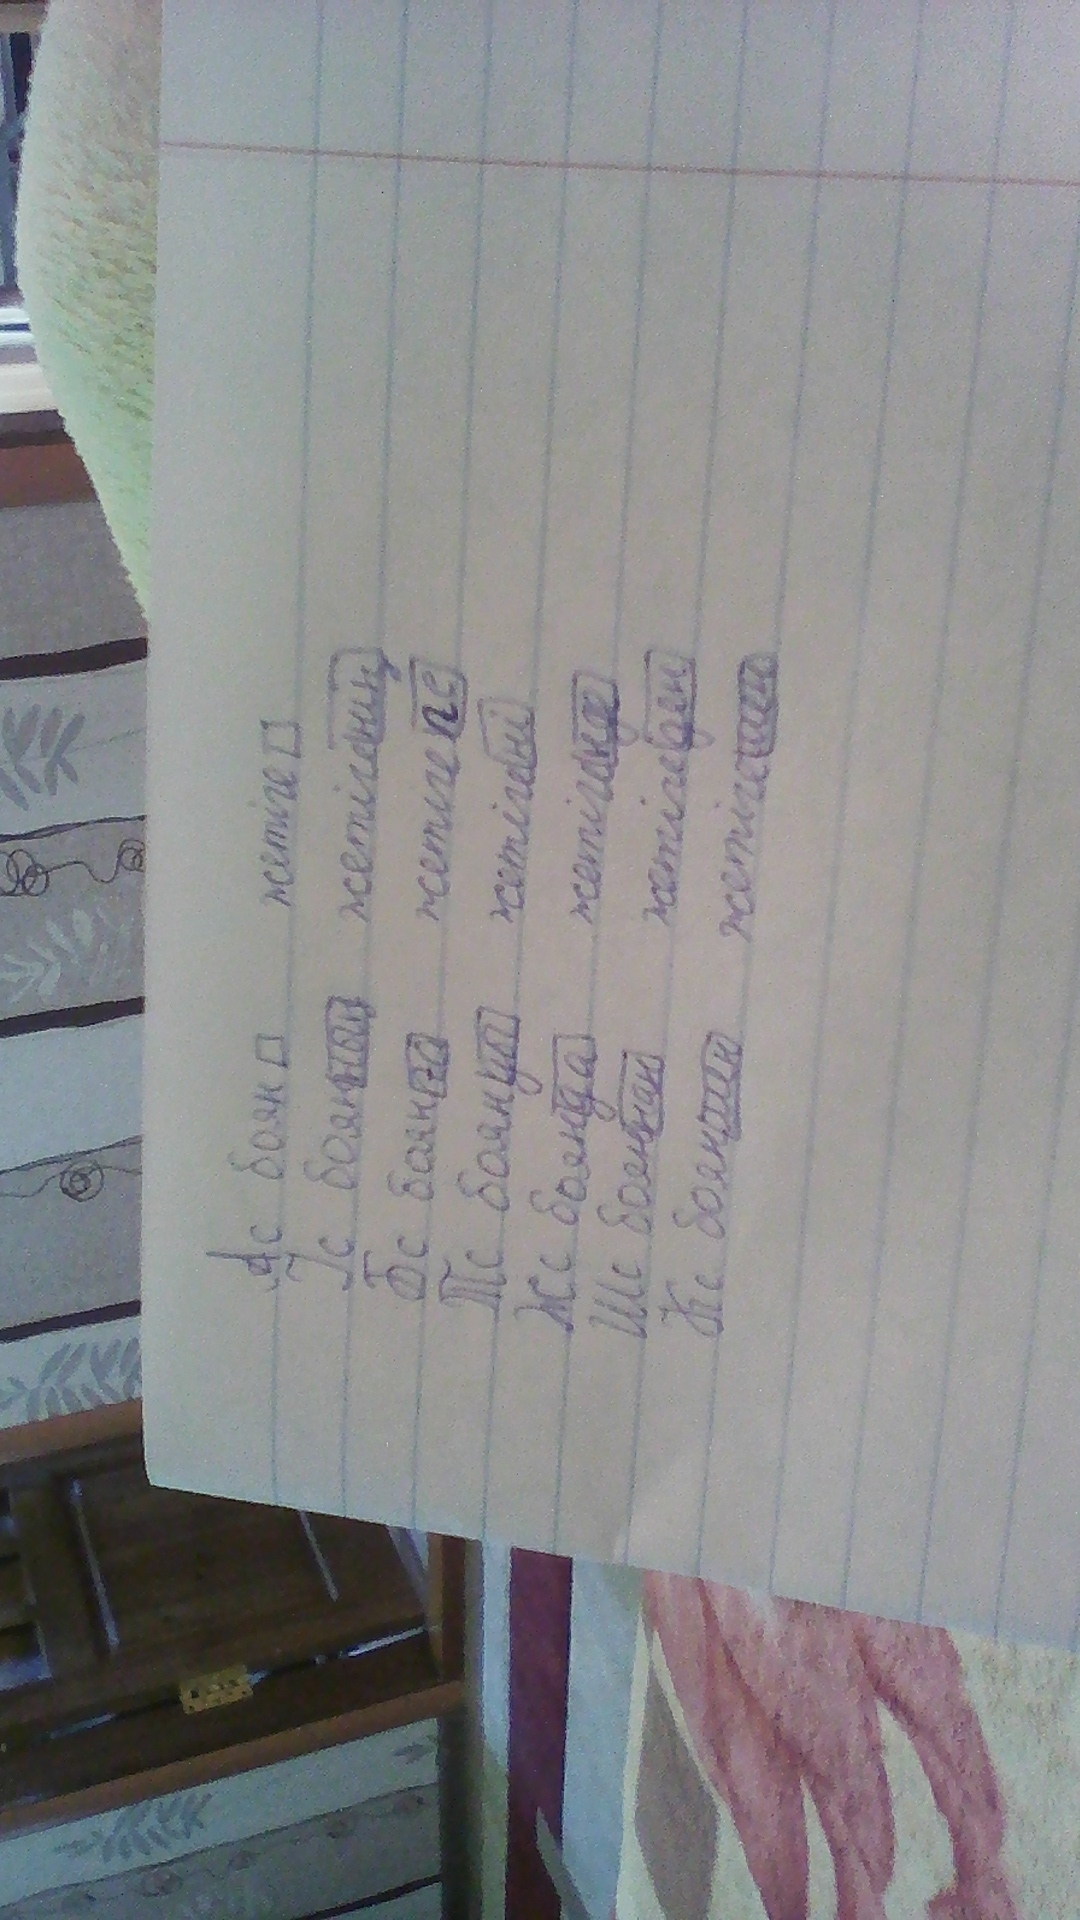 Ас боян жетіге
Іс боянның жетігенің
Бс боянға жетігеге
Тс боянды жетігені
Жс боянда жетігенде
Шс бояннан жетігеден
Кс боян жетіге